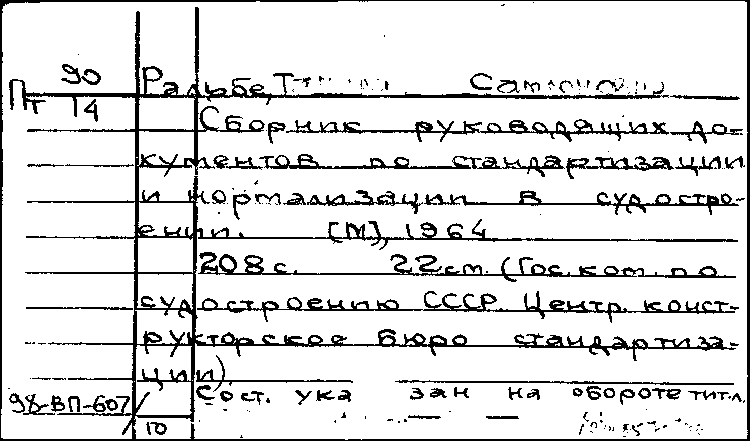 Пт 90
14
Ральбе,
Сборник руководящих до-
кументов по стандартизации
и нормализации в судостро-
ении. [М], 1964
208 с. 22 см. (Гос. ком. по
судостроению СССР. Центр. конст-
рукторское бюро стандартиза-
ции).
Сост. ука зан на обороте тит. л.
98-ВП-607/
10